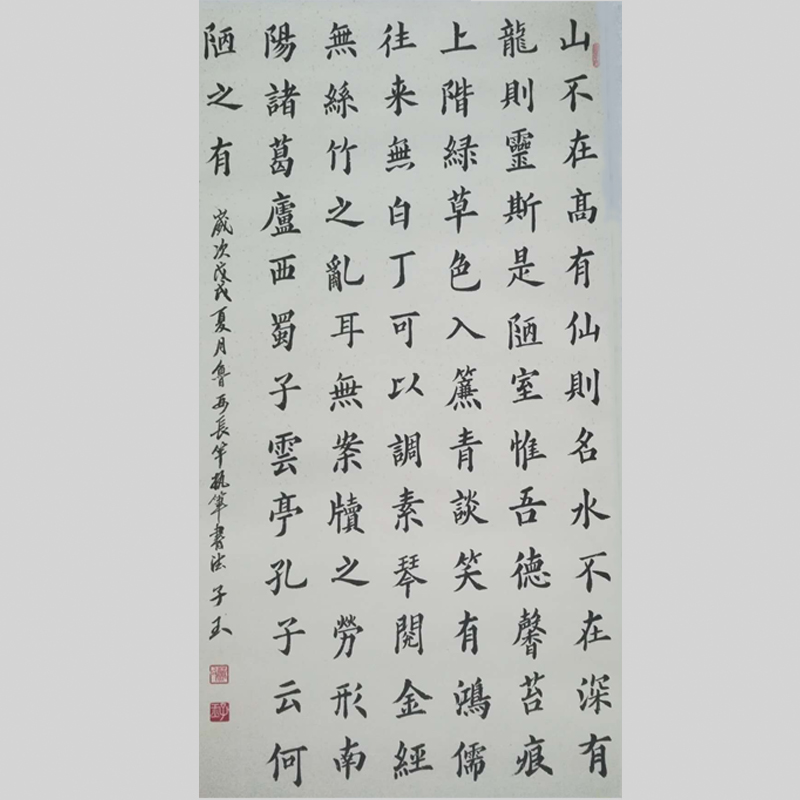 山不在髙有仙則名水不在深有
龍則靈斯是陋室惟吾德馨苔痕
上階緑草色入簾青談笑有鴻儒
往来無白丁可以調素琴閲金經
無絲竹之亂耳無案牘之勞形南
陽諸葛廬西蜀子雲亭孔子云何
陋之有
歲次戊戌夏月魯西長竿執筆書法子玉